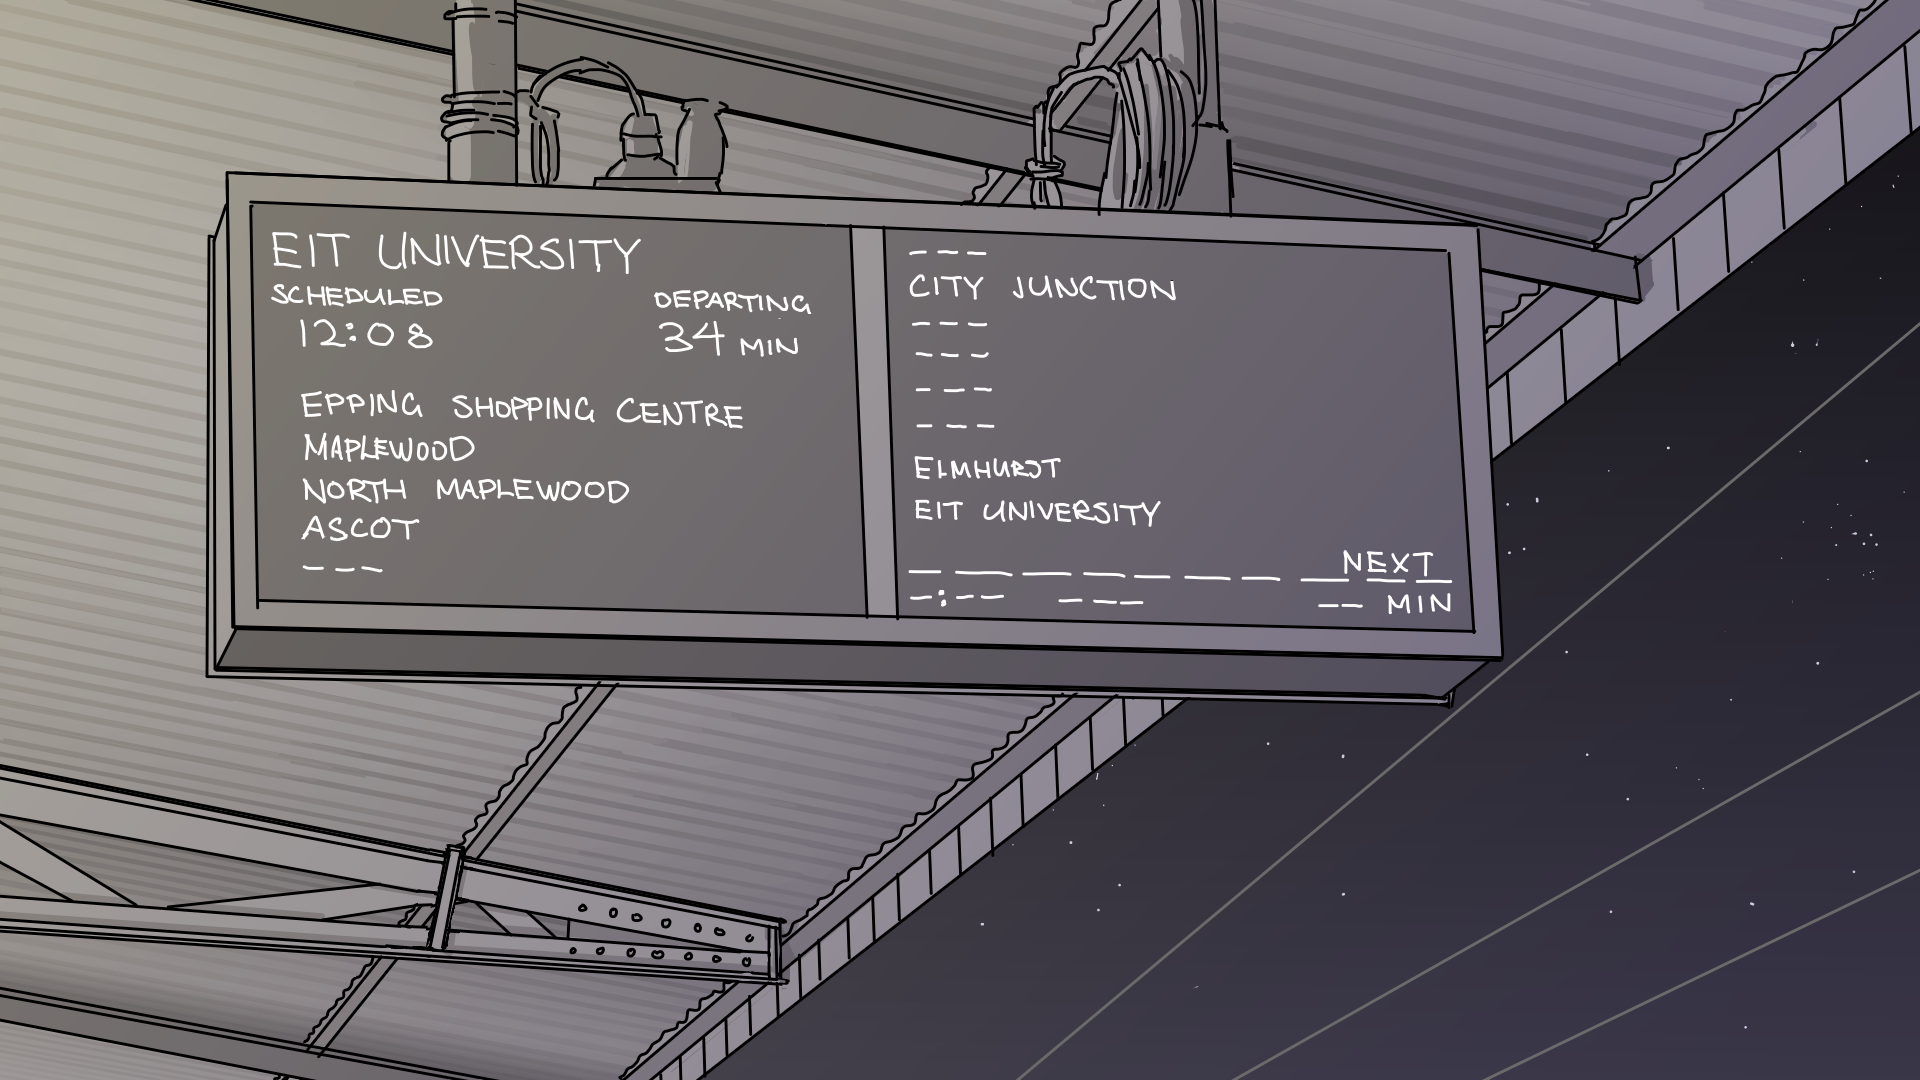 EIT UNIVERSITY
SCHEDULED
12:08
DEPARTING
34 MIN
EPPING SHOPPING CENTRE
MAPLEWOOD
NORTH MAPLEWOOD
ASCOT
---
---
CITY JUNCTION
---
---
---
---
ELMHURST
EIT UNIVERSITY
NEXT
-:-- --- -- MIN